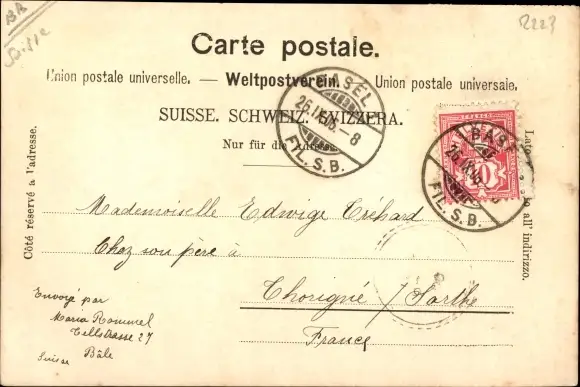 BR
Suisse
2223
Carte postale.
Union postale universelle. — Weltpostverein. — Union postale universale.
SUISSE. SCHWEIZ. SVIZZERA.
Nur für die Adresse.
Côté réservé à l'adresse.
Lato all' indirizzo.
BASEL
26.IX.
-8
FIL. S.B.
BASEL
FIL. S.B.
FRANCO
10
Mademoiselle Edwige Tréhard
Chez son père à
Thorigné / Sarthe
France
Envoyé par
Maria Rommel
Tellstrasse 27
Bâle
Suisse